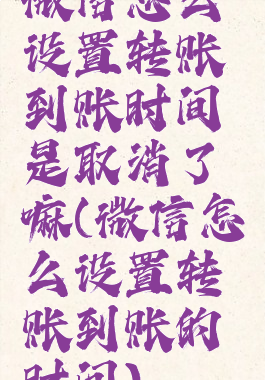 微信怎么
设置转账
到账时间
是取消了
嘛(微信怎
么设置转
账到账的
时间)